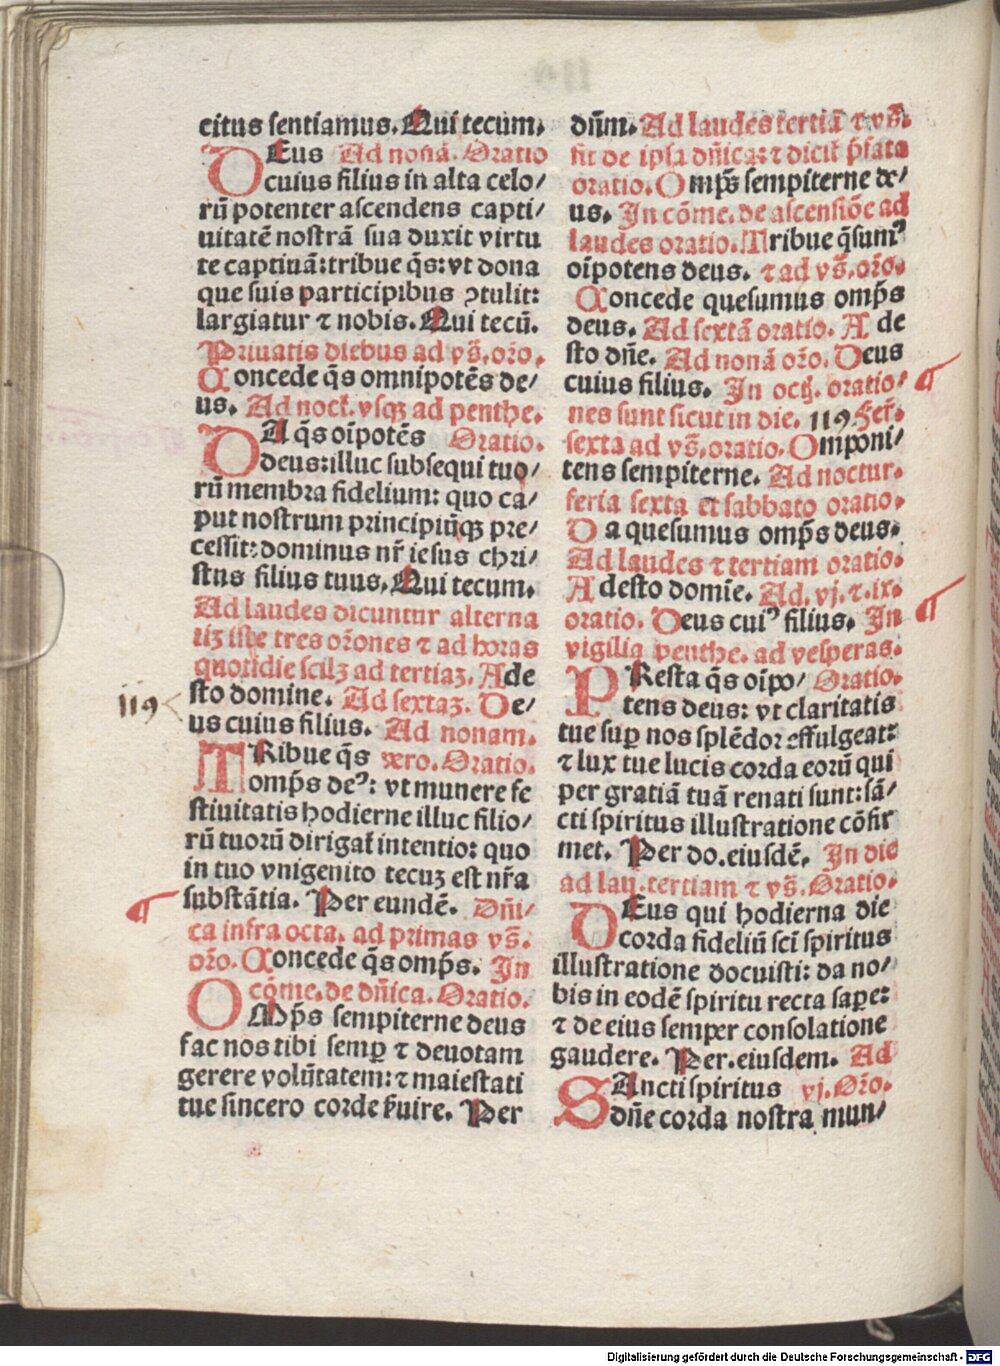 citus sentiamus. Qui tecum.
DEus Ad nonā. Oratio
cuius filius in alta celo/
rū potenter ascendens capti/
uitatē nostrā sua duxit virtu
te captiuā: tribue q̄s: vt dona
que suis participibus ꝯtulit:
largiatur ⁊ nobis. Qui tecū.
Priuatis diebus ad vs̄. or̄o.
Concede q̄s omnipotēs de/
us. Ad noct. vsqꝫ ad penthe.
DA q̄s oīpotēs Oratio.
deus: illuc subsequi tuo/
rū membra fidelium: quo ca/
put nostrum principiūqꝫ pre/
cessit: dominus nr̄ iesus chri/
stus filius tuus. Qui tecum.
Ad laudes dicuntur alterna
tiꝫ iste tres or̄ones ⁊ ad horas
quotidie scilꝫ ad tertiaꝫ. Ade
sto domine. Ad sextaꝫ. De/
119
us cuius filius. Ad nonam.
TRibue q̄s vero. Oratio.
omp̄s deꝰ: vt munere fe
stiuitatis hodierne illuc filio/
rū tuorū dirigat̄ intentio: quo
in tuo vnigenito tecuꝫ est nr̄a
substātia. Per eundē. Dn̄i/
ca infra octa. ad primas vs̄.
or̄o. Concede q̄s omp̄s. In
cōme. de dn̄ica. Oratio.
OMp̄s sempiterne deus
fac nos tibi semꝑ ⁊ deuotam
gerere volūtatem: ⁊ maiestati
tue sincero corde s̄uire. Per
dn̄m. Ad laudes tertiā ⁊ vs̄.
fit de ipsa dn̄ica: ⁊ dicit̄ p̄fata
oratio. Omp̄s sempiterne de/
us. In cōme. de ascensiōe ad
laudes oratio. Tribue q̄sumꝰ
oīpotens deus. ⁊ ad vs̄. or̄o.
Concede quesumus omp̄s
deus. Ad sextā oratio. A de
sto dn̄e. Ad nonā or̄o. Deus
cuius filius. In oct̄. oratio/
nes sunt sicut in die. 119 Fer̄.
sexta ad vs̄. oratio. Omponi/
tens sempiterne. Ad noctur.
feria sexta et sabbato oratio.
D a quesumus omp̄s deus.
Ad laudes ⁊ tertiam oratio.
A desto domīe. Ad. vj. ⁊. ix.
oratio. Deus cuiꝰ filius. In
vigilia penthe. ad vesperas.
PResta q̄s oīpo/ Oratio.
tens deus: vt claritatis
tue suꝑ nos splēdor effulgeat:
⁊ lux tue lucis corda eorū qui
per gratiā tuā renati sunt: sā/
cti spiritus illustratione cōfir
met. Per do. eiusdē. In die
ad lau. tertiam ⁊ vs̄. Oratio.
DEus qui hodierna die
corda fideliū sc̄i spiritus
illustratione docuisti: da no/
bis in eodē spiritu recta saꝑe:
⁊ de eius semper consolatione
gaudere. Per. eiusdem. Ad
SAncti spiritus vj. Or̄o.
dn̄e corda nostra mun/
Digitalisierung gefördert durch die Deutsche Forschungsgemeinschaft - DFG